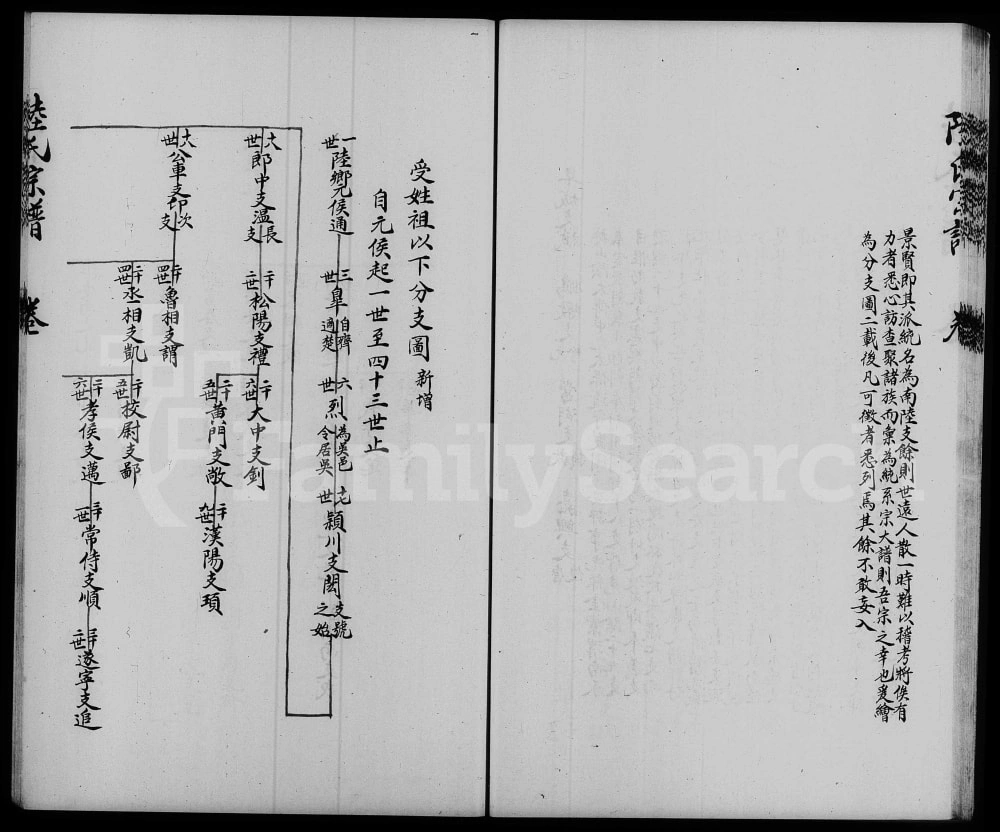 景賢即其派統名為南陸支餘則世遠人散一時難以稽考將俟有
力者悉心訪查聚諸族而彙為統系宗大譜則吾宗之幸也爰繪
為分支圖二載後凡可徵者悉列焉其餘不敢妄入
受姓祖以下分支圖 新增
自元侯起一世至四十三世止
一世 陸鄉元侯通
三世 皐 自齊適楚
六世 烈 為吳邑令居吳
十七世 潁川支閎 支號之始
十八世 郎中支溫 長支
二十二世 松陽支禮
二十六世 大中支釗
二十五世 黃門支敞
二十九世 漢陽支瓊
十八世 公車支印 次支
二十四世 魯相支謂
二十四世 丞相支凱
二十五世 校尉支鄐
二十六世 孝侯支邁
三十一世 常侍支順
三十二世 遂寧支追
陸氏宗譜 卷
FamilySearch